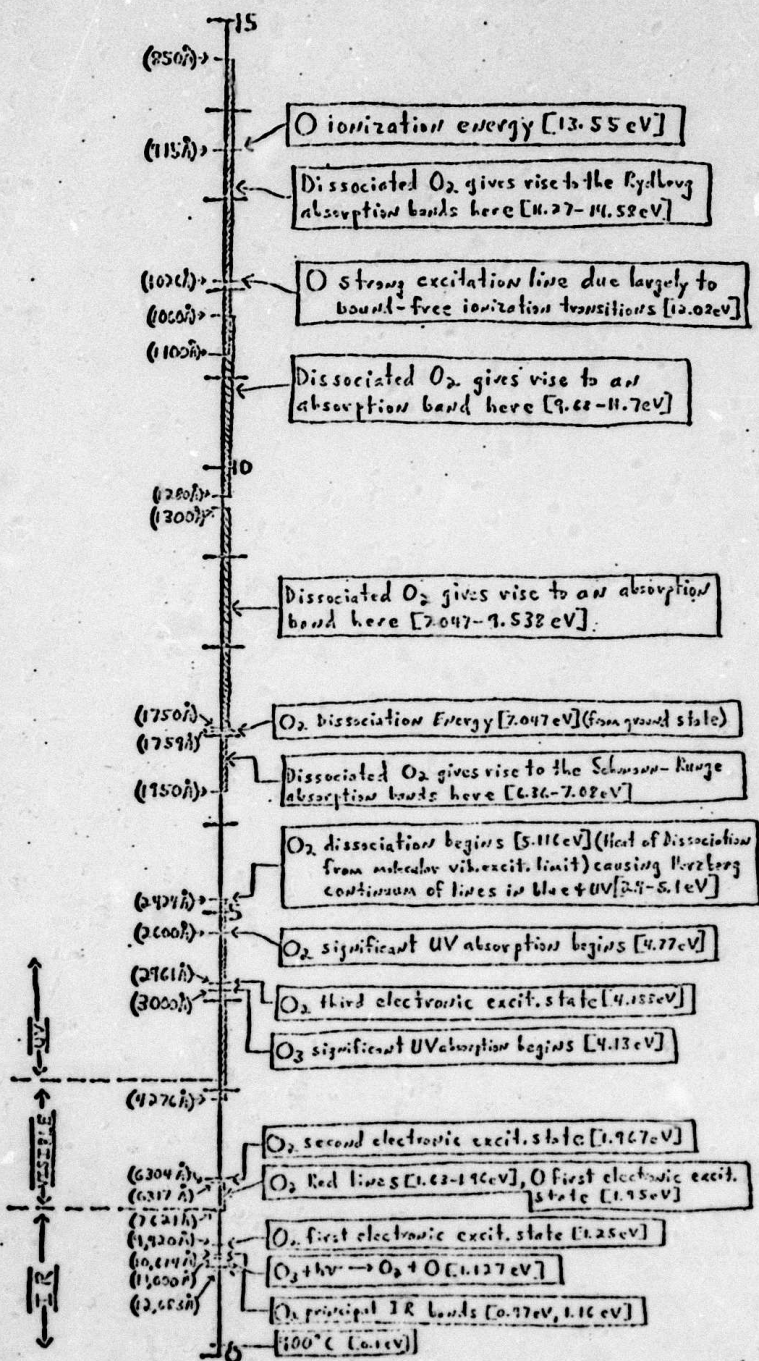 15
(850Å)
O ionization energy [13.55eV]
(915Å)
Dissociated O₂ gives rise to the Rydberg
absorption bands here [11.27-14.58eV]
(1026Å)
O strong excitation line due largely to
bound-free ionization transitions [12.02eV]
(1060Å)
(1100Å)
Dissociated O₂ gives rise to an
absorption band here [9.68-11.7eV]
10
(1280Å)
(1300Å)
Dissociated O₂ gives rise to an absorption
band here [7.047-9.538eV]
(1750Å)
O₂ Dissociation Energy [7.047eV] (from ground state)
(1759Å)
Dissociated O₂ gives rise to the Schumann-Runge
absorption bands here [6.36-7.08eV]
(1950Å)
O₂ dissociation begins [5.116eV] (Heat of Dissociation
from molecular vib. excit. limit) causing Herzberg
continuum of lines in blue + UV [2.9-5.1eV]
(2424Å)
5
(2600Å)
O₂ significant UV absorption begins [4.77eV]
(2961Å)
O₂ third electronic excit. state [4.188eV]
(3000Å)
O₃ significant UV absorption begins [4.13eV]
UV
(4276Å)
VISIBLE
O₂ second electronic excit. state [1.967eV]
(6304Å)
O₂ Red lines [1.63-1.96eV], O first electronic excit.
state [1.95eV]
(6317Å)
(7621Å)
O₂ first electronic excit. state [1.25eV]
(9,920Å)
(10,674Å)
O₃ + hν → O₂ + O [1.127eV]
(11,000Å)
(12,653Å)
O₂ principal IR bands [0.97eV, 1.16eV]
IR
100°C [0.1eV]
0